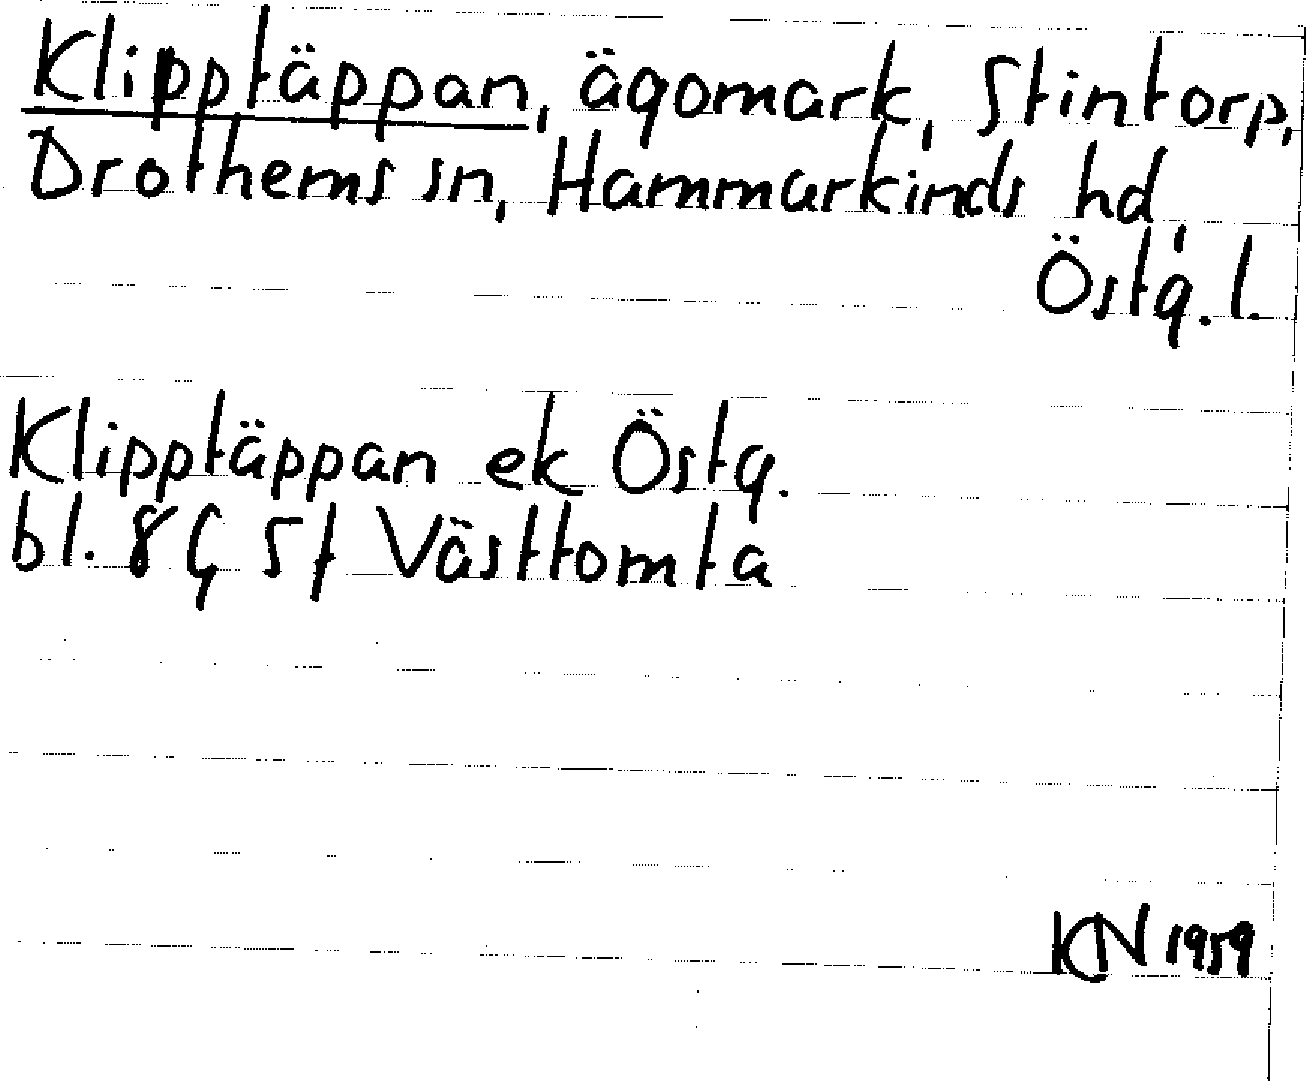 Klipptäppan, ägomark, Stintorp,
Drothems sn, Hammarkinds hd,
Östg. l.
Klipptäppan ek Östg.
bl. 8G 5f Västtomta
KN 1959